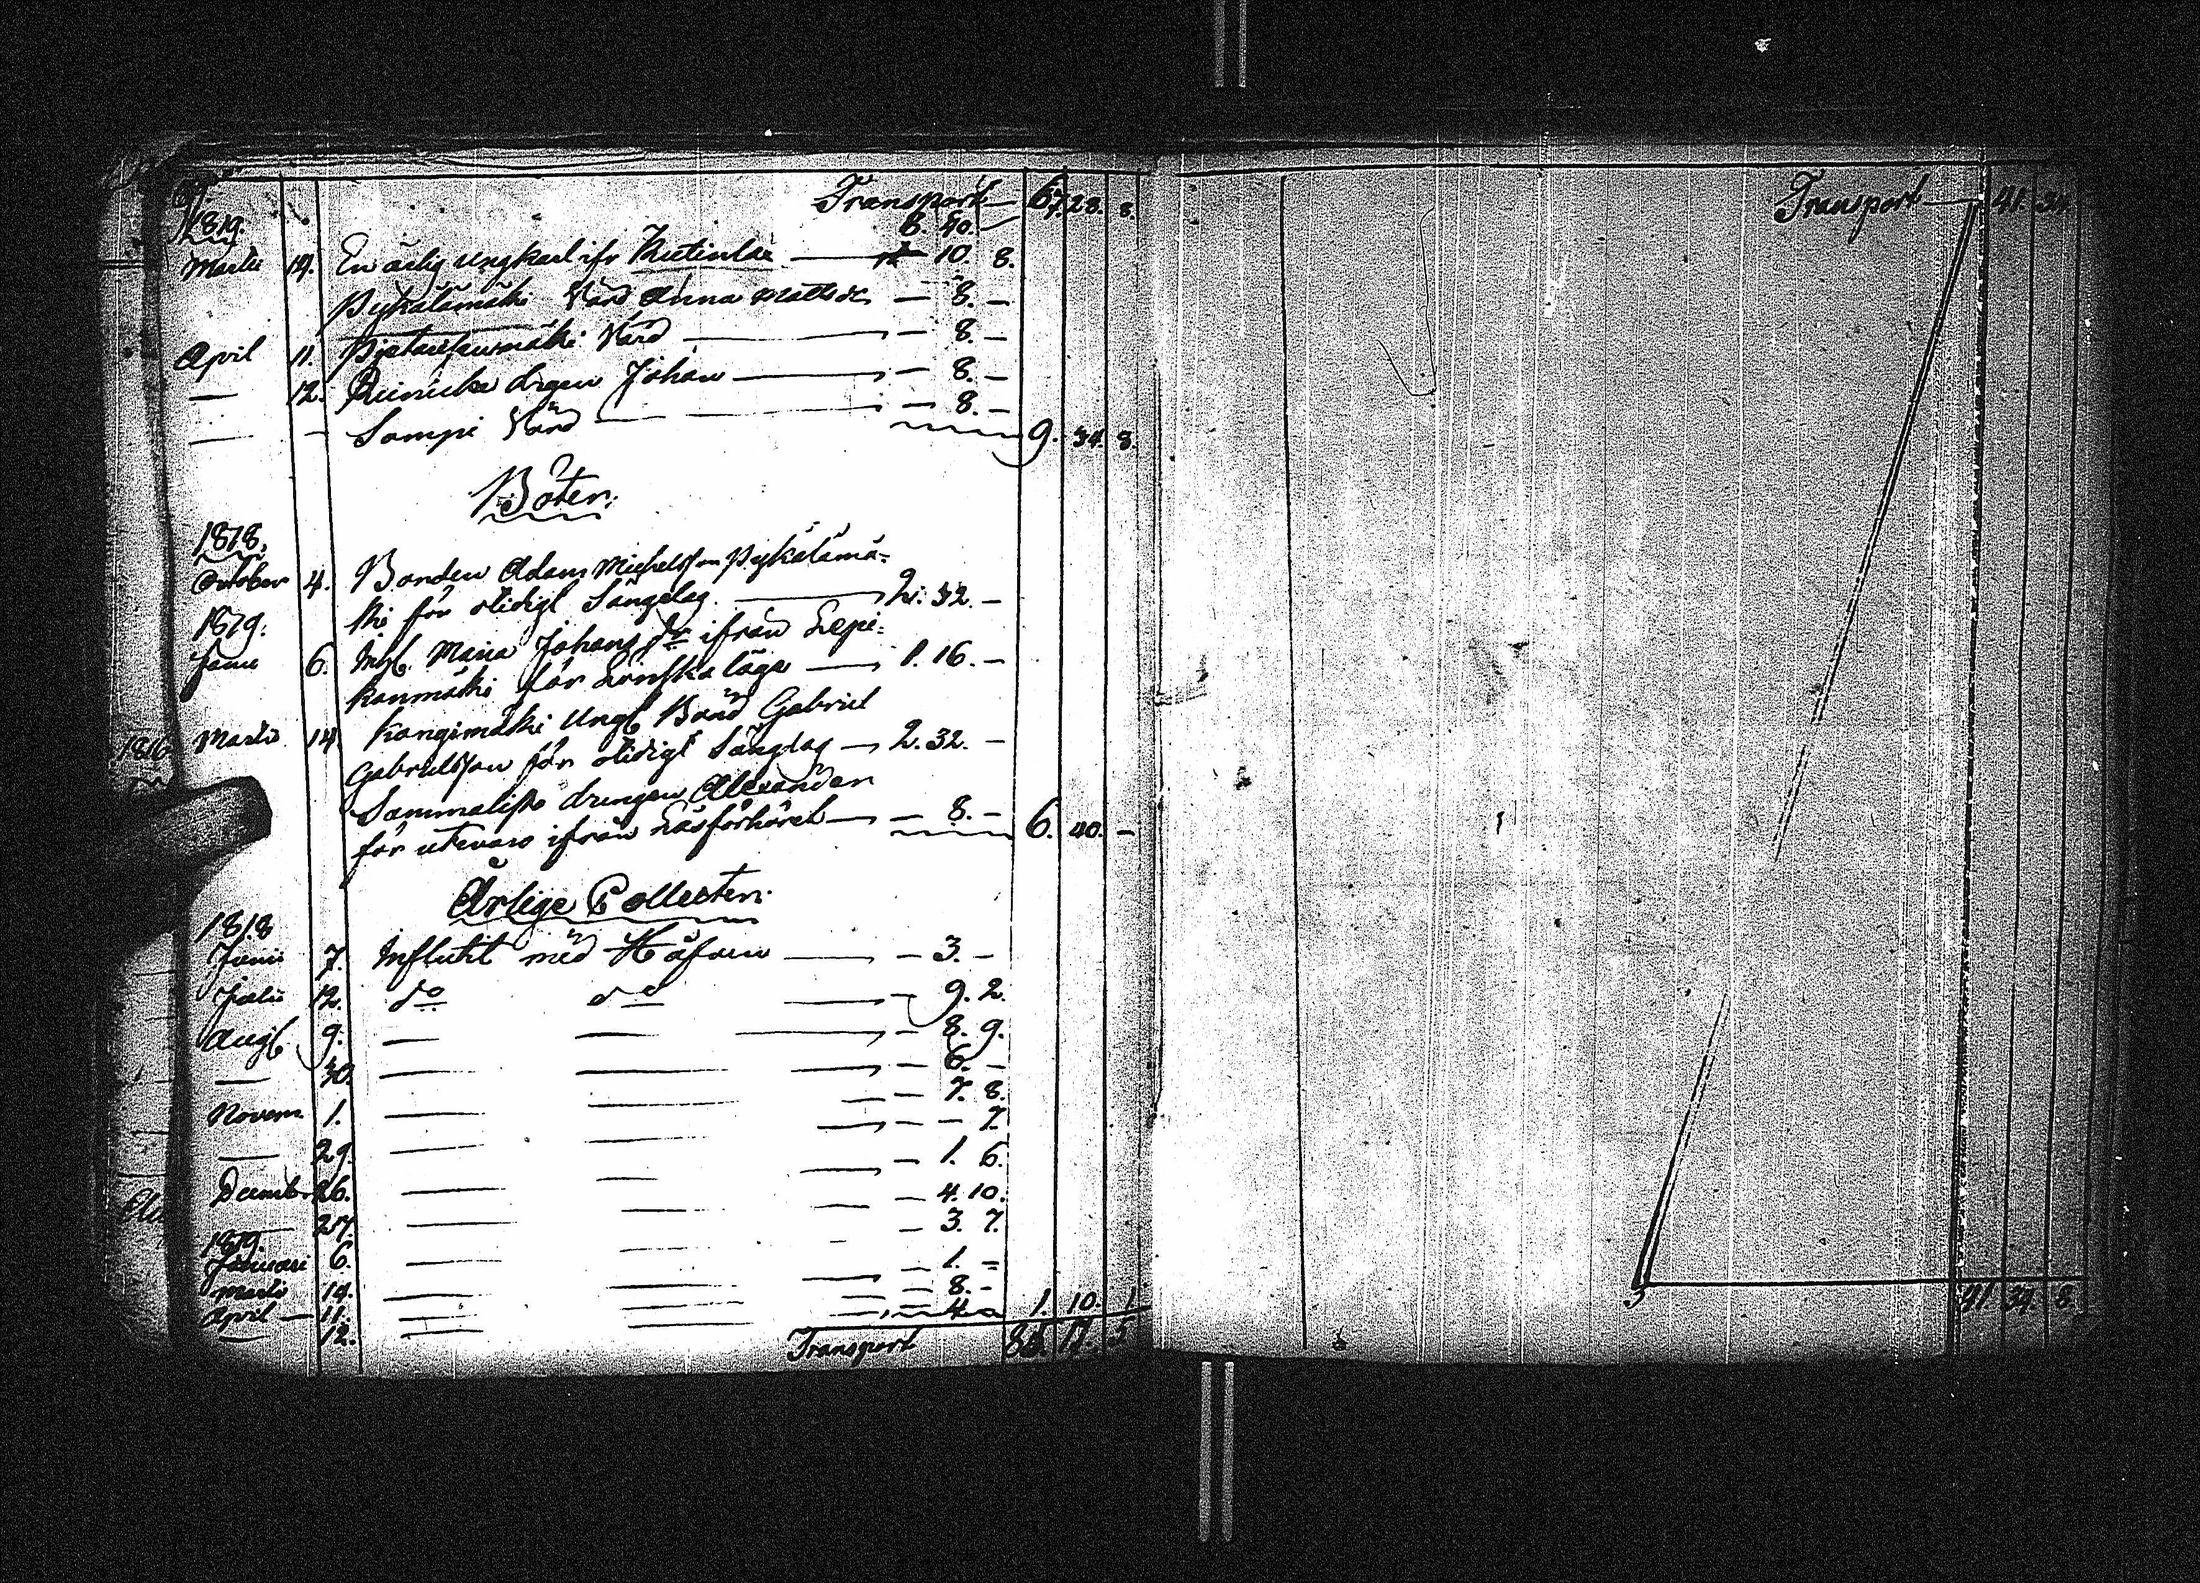 Transport — 67. 28. 8.
1819. 8. 40.
Martii 14. En ärlig ungkarl ifr — 10. 8.
Pykälämäki Värd Anna Matts dr — 8. —
April 11. Värd — 8. —
— 12. drgen Johan — 8. —
— — Sampi Värd — 8. — 9. 34. 8.
Böter:
1818.
October 4. Bonden Adam Michelsson Pykälämä=
ki för otidigt Sängelag. — 2. 32. —
1819.
6. Maria Johans dr ifrån Lepi=
kanmäki för Lönska läge — 1. 16. —
Martii 14. Kangimäki Bond Gabriel
Gabrielsson för otidigt Sänglag — 2. 32. —
Sammalisto drengen Alexander
för utevaro ifrån Läsförhöret — 8. — 6. 40. —
Årlige Collecten:
1818
Junii 7. Influtit med Håfven — 3. —
Julii 12. do do — 9. 2.
Aug. 9. — — 8. 9.
— 30. — — 6. —
Novem. 1. — — 7. 8.
— 29. — — 7.
Decemb. 26. — — 1. 6.
— 27. — — 4. 10.
1819. 3. 7.
Januari 6. — — 1. =
Martii 14. — — 8. —
April — 11. — — 4. — 1. 10. 1
— 12. — —
Transport 85. 17. 5
Transport — 41. 34.
41. 34. 8.